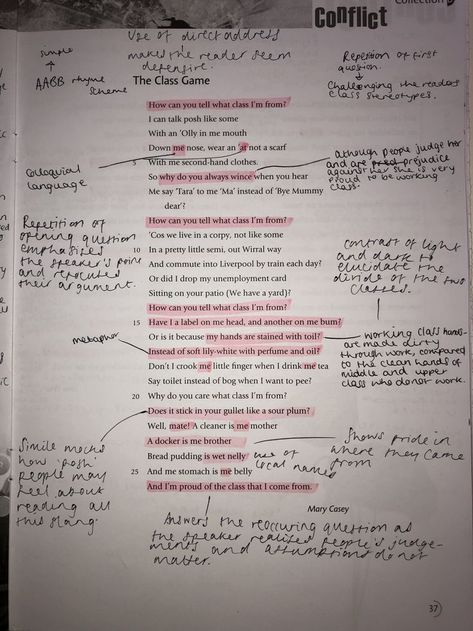 Collection
Conflict
Use of direct address
makes the reader seem
defensive.
simple
AABB rhyme
scheme
Repetition of first
question.
Challenging the readers
class stereotypes.
The Class Game
How can you tell what class I'm from?
I can talk posh like some
With an 'Olly in me mouth
Down me nose, wear an 'at not a scarf
5 With me second-hand clothes.
So why do you always wince when you hear
Me say 'Tara' to me 'Ma' instead of 'Bye Mummy
dear'?
How can you tell what class I'm from?
'Cos we live in a corpy, not like some
10 In a pretty little semi, out Wirral way
And commute into Liverpool by train each day?
Or did I drop my unemployment card
Sitting on your patio (We have a yard)?
How can you tell what class I'm from?
15 Have I a label on me head, and another on me bum?
Or is it because my hands are stained with toil?
Instead of soft lily-white with perfume and oil?
Don't I crook me little finger when I drink me tea
Say toilet instead of bog when I want to pee?
20 Why do you care what class I'm from?
Does it stick in your gullet like a sour plum?
Well, mate! A cleaner is me mother
A docker is me brother
Bread pudding is wet nelly
25 And me stomach is me belly
And I'm proud of the class that I come from.
Mary Casey
colloquial
language
although people judge her
and are pred prejudice
against her she is very
proud to be working
class.
Repetition of
opening question
emphasizes
the speaker's point
and
their argument.
contrast of light
and dark to
elucidate the
divide of the two
classes.
metaphor
working class hands
are made dirty
through work, compared
to the clean hands of
middle and upper
class who do not work.
Simile mocks
how 'posh'
people may
feel about
reading all
this slang.
Shows pride in
where they came
from
use of
local names
Answers the reoccuring question as
the speaker realises people's judge-
ments and assumptions do not
matter.
37